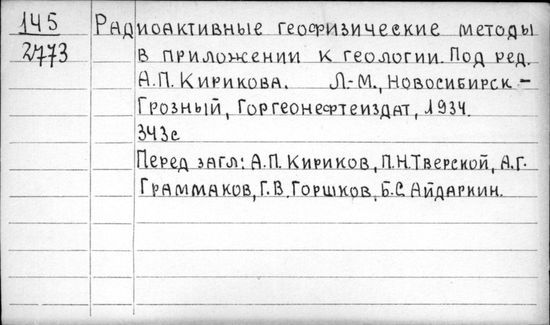 145 Радиоактивные геофизические методы
2773 в приложении к геологии. Под ред.
А.П. Кирикова. Л.-М., Новосибирск-
Грозный, Горгеонефтеиздат, 1934.
343с
Перед загл: А.П. Кириков, П.Н. Тверской, А.Г.
Граммаков, Г.В. Горшков, Б.С. Айдаркин.